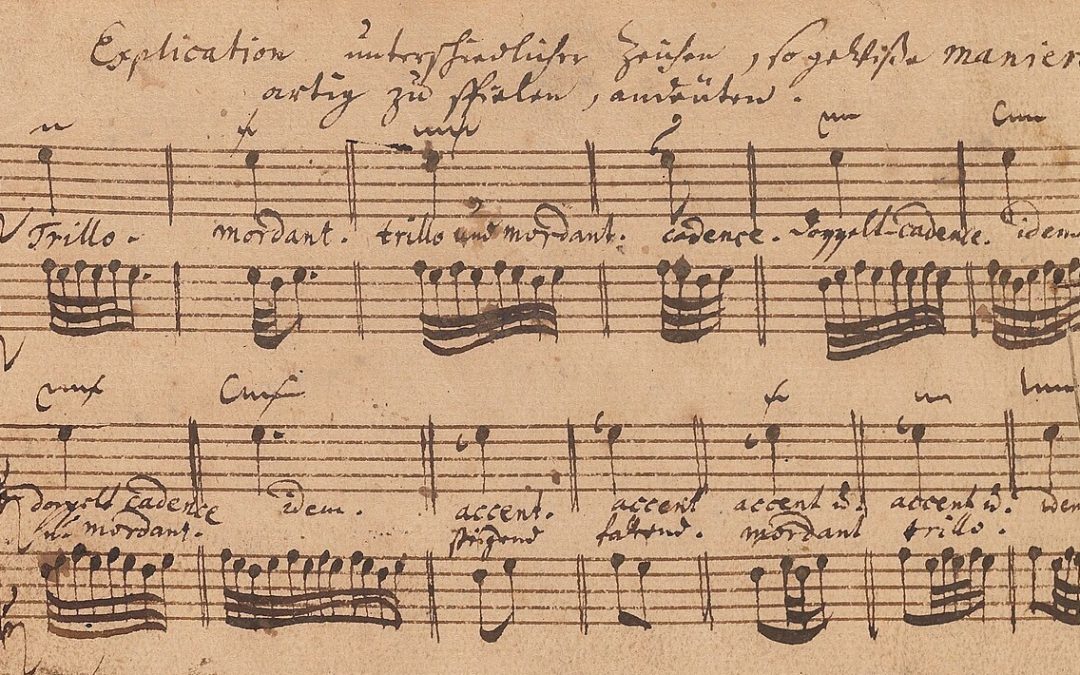 Explication unterschiedlicher Zeichen, so gewiße manieren
artig zu spielen, andeuten.
Trillo. mordant. trillo und mordant. cadence. doppelt-cadence. idem
doppelt cadence idem. accent accent accent ŭ. accent ŭ. idem
ŭ. mordant. steigend fallend. mordant trillo.